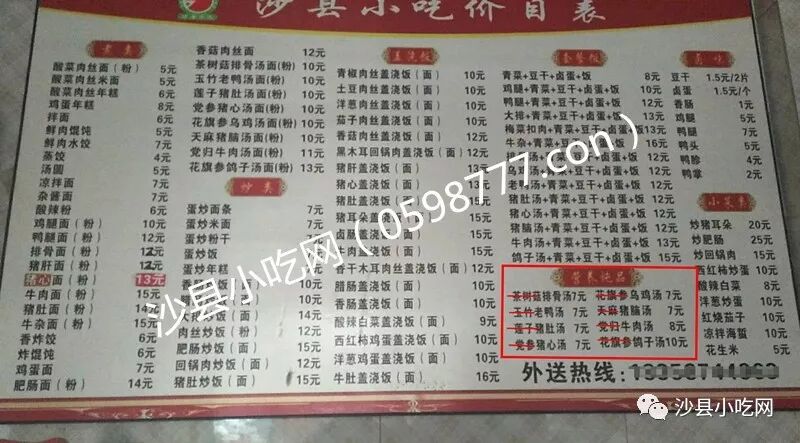 沙县小吃价目表
煮类
酸菜肉丝面(粉) 5元
酸菜肉丝米面 5元
酸菜肉丝年糕 6元
鸡蛋年糕 8元
拌面
鲜肉馄饨 5元
鲜肉水饺 7元
蒸饺 4元
汤圆 5元
凉拌面 7元
杂酱面 7元
酸辣粉 6元
鸡腿面(粉) 10元
鸭腿面(粉) 12元
排骨面(粉) 12元
猪肝面(粉)
猪心面(粉) 13元
牛肉面(粉) 15元
猪肚面(粉) 14元
牛杂面(粉) 15元
香炸饺 6元
炸馄饨 6元
鸡蛋面 7元
肥肠面(粉) 14元
香菇肉丝面 12元
茶树菇排骨汤面(粉) 10元
玉竹老鸭汤面(粉) 10元
莲子猪肚汤面(粉) 10元
党参猪心汤面(粉) 10元
花旗参乌鸡汤面(粉) 10元
天麻猪脑汤面(粉) 10元
党归牛肉汤面(粉) 11元
花旗参鸽子汤面(粉) 13元
炒类
蛋炒面条 7元
蛋炒米面 7元
蛋炒粉干
蛋炒饭
蛋炒年糕
猪肝炒饭
牛肉炒饭 15元
肥肠炒饭 15元
猪肚炒饭 15元
盖浇饭
青椒肉丝盖浇饭(面) 10元
土豆肉丝盖浇饭(面) 10元
洋葱肉丝盖浇饭(面) 10元
茄子肉丝盖浇饭(面) 10元
香菇肉丝盖浇饭(面) 12元
黑木耳回锅肉盖浇饭(面)
猪肝盖浇饭(面)
猪心盖浇饭(面)
猪肚盖浇饭(面)
猪耳朵盖浇饭(面)
牛肉盖浇饭(面)
香干木耳肉丝盖浇饭(面)
腊肠盖浇饭(面) 10元
香肠盖浇饭(面) 10元
酸辣白菜盖浇饭(面) 9元
西红柿鸡蛋盖浇饭(面) 10元
洋葱鸡蛋盖浇饭(面) 10元
牛肚盖浇饭(面) 16元
套餐饭
青菜+豆干+卤蛋+饭 8元
鸡腿+青菜+豆干+卤蛋+饭
鸭腿+青菜+豆干+卤蛋+饭
大排+青菜+豆干+卤蛋+饭
梅菜扣肉+青菜+豆干+卤蛋+饭 13元
牛杂+青菜+豆干+卤蛋+饭
猪心汤+青菜+豆干+卤蛋+饭 12元
乌鸡汤+青菜+豆干+卤蛋+饭 12元
猪脑汤+青菜+豆干+卤蛋+饭 12元
牛肉汤+青菜+豆干+卤蛋+饭
鸽子汤+青菜+豆干+卤蛋+饭 15元
卤味
豆干 1.5元/2片
卤蛋 1.5元/个
香肠 1元
鸡腿
鸭腿
鸭头
鸭胗
鸭掌 2元
小菜类
炒猪耳朵 20元
炒肥肠 25元
炒回锅肉
西红柿炒蛋 10元
酸辣白菜 8元
洋葱炒蛋 10元
红烧茄子 10元
凉拌海蜇 10元
花生米 5元
营养炖品
茶树菇排骨汤7元 花旗参乌鸡汤7元
玉竹老鸭汤 7元 天麻猪脑汤 7元
莲子猪肚汤 7元 党归牛肉汤 8元
党参猪心汤 7元 花旗参鸽子汤10元
外送热线:
沙县小吃网(0598777.con)
沙县小吃网